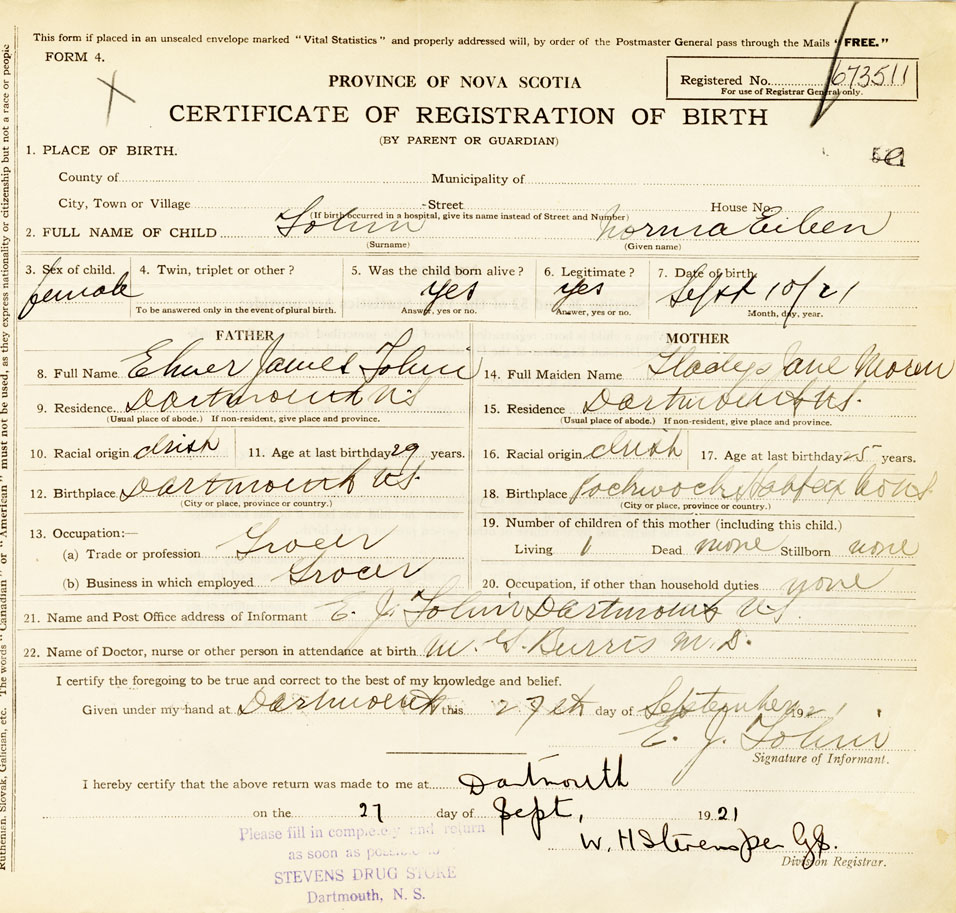 This form if placed in an unsealed envelope marked "Vital Statistics" and properly addressed will, by order of the Postmaster General pass through the Mails "FREE."
FORM 4.
PROVINCE OF NOVA SCOTIA
Registered No. 673511
For use of Registrar General only.
CERTIFICATE OF REGISTRATION OF BIRTH
(BY PARENT OR GUARDIAN)
1. PLACE OF BIRTH.
County of Municipality of
City, Town or Village Street House No.
(If birth occurred in a hospital, give its name instead of Street and Number)
2. FULL NAME OF CHILD Norma Eileen
(Surname) (Given name)
3. Sex of child. 4. Twin, triplet or other? 5. Was the child born alive? 6. Legitimate? 7. Date of birth
female yes yes Sept 10/21
To be answered only in the event of plural birth. Answer, yes or no. Answer, yes or no. Month, day, year.
FATHER MOTHER
8. Full Name Elmer James 14. Full Maiden Name Gladys Jane
9. Residence Dartmouth NS 15. Residence Dartmouth NS.
(Usual place of abode.) If non-resident, give place and province. (Usual place of abode.) If non-resident, give place and province.
10. Racial origin Irish 11. Age at last birthday 29 years. 16. Racial origin Irish 17. Age at last birthday 25 years.
12. Birthplace Dartmouth NS. 18. Birthplace Pockwock Halifax Co NS
(City or place, province or country.) (City or place, province or country.)
13. Occupation:— 19. Number of children of this mother (including this child.)
(a) Trade or profession Grocer Living 1 Dead none Stillborn none
(b) Business in which employed Grocer 20. Occupation, if other than household duties none
21. Name and Post Office address of Informant E. J. Dartmouth NS.
22. Name of Doctor, nurse or other person in attendance at birth M. G. Burris M.D.
I certify the foregoing to be true and correct to the best of my knowledge and belief.
Given under my hand at Dartmouth this 27th day of September 1921
E. J.
Signature of Informant.
I hereby certify that the above return was made to me at Dartmouth
on the 27 day of Sept, 1921
Please fill in completely and return
as soon as possible to
STEVENS DRUG STORE
Dartmouth, N. S.
W. H Stevens per
Division Registrar.
Ruthenian, Slovak, Galician, etc. The words "Canadian" or "American" must not be used, as they express nationality or citizenship but not a race or people